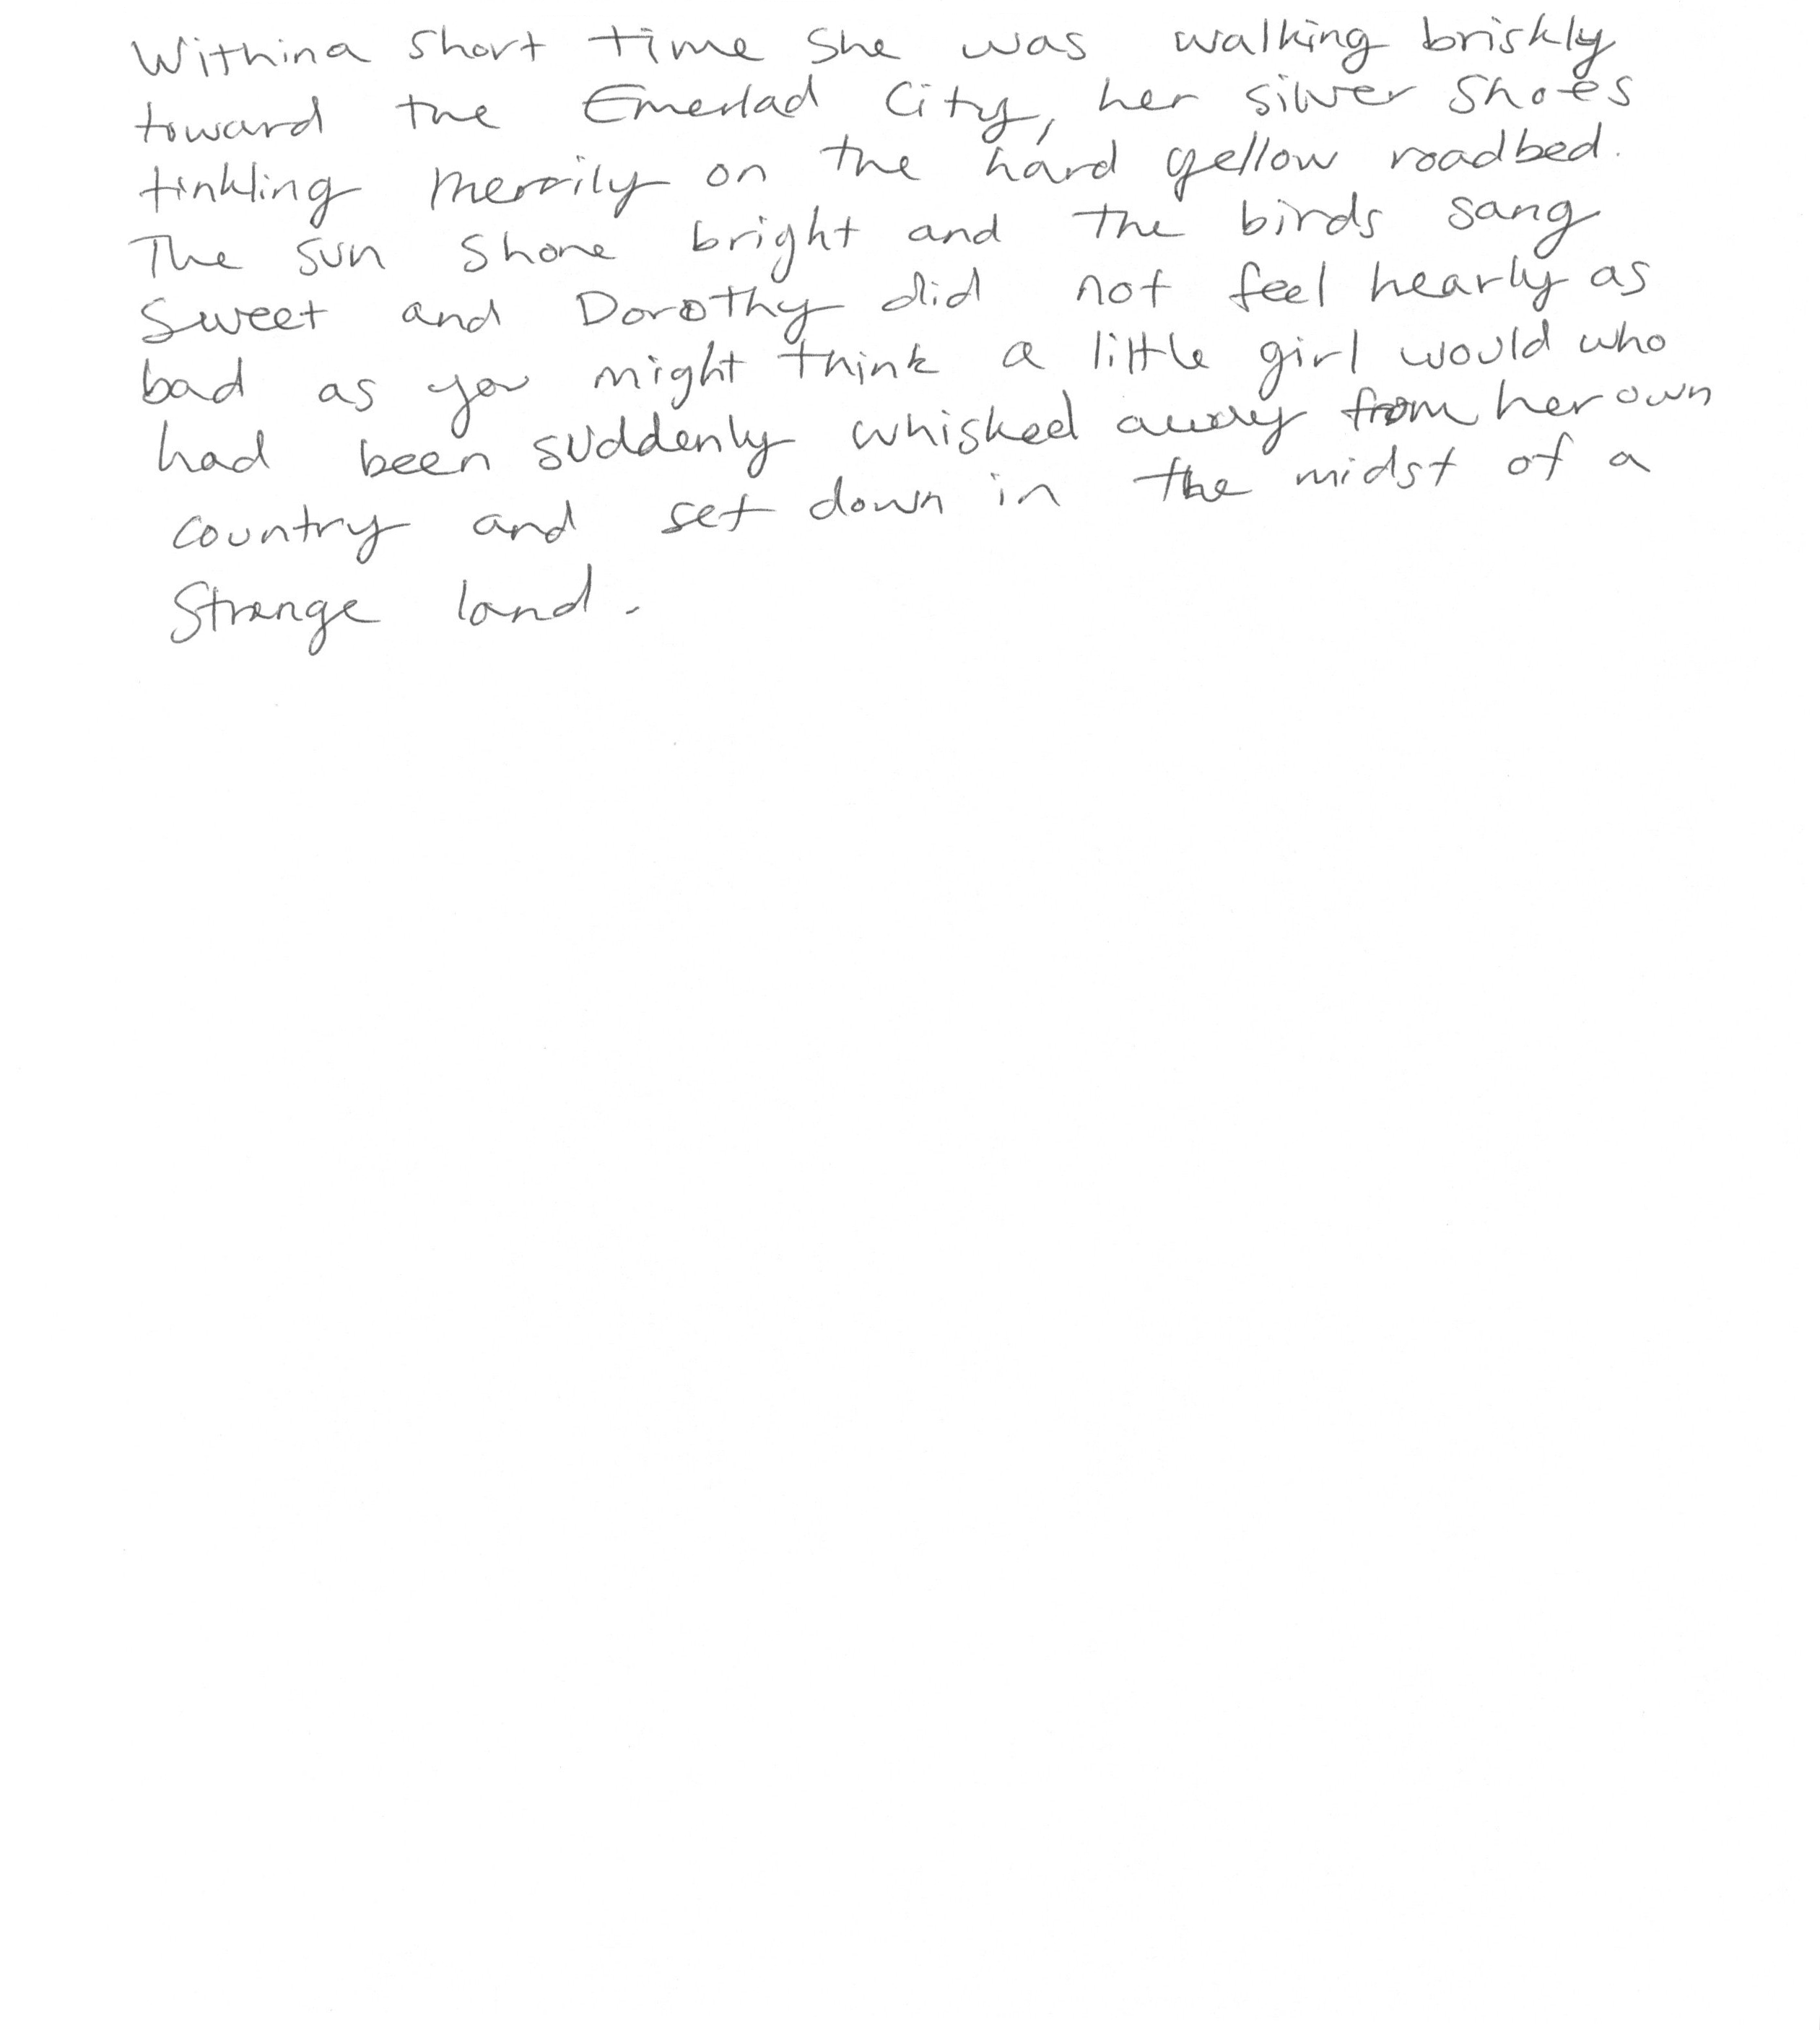 Within a short time she was walking briskly
toward the Emerlad City, her silver shoes
tinkling merrily on the hard yellow roadbed.
The sun shone bright and the birds sang
sweet and Dorothy did not feel nearly as
bad as you might think a little girl would who
had been suddenly whisked away from her own
country and set down in the midst of a
strange land.